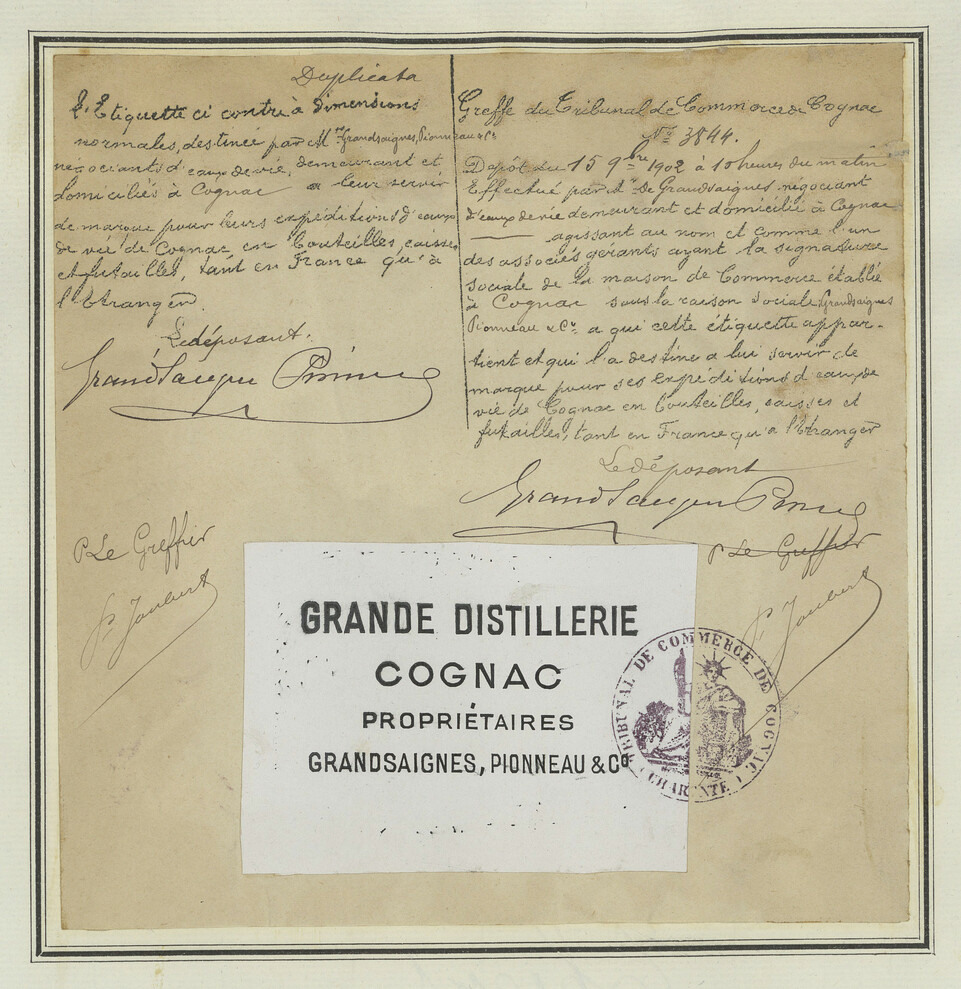 Duplicata
L'Etiquette ci contre à dimensions
normales, destinée par MM.rs Grandsaignes, Pionneau & Co.
négociants d'eaux de vie, demeurant et
domiciliés à Cognac a leur servir
de marque pour leurs expéditions d'eaux
de vie de Cognac en bouteilles, caisses
et futailles, tant en France qu'à
l'étranger
Le déposant:
Grandsaignes Pionneau
P Le Greffier
P. Joubert
Greffe du Tribunal de Commerce de Cognac
No. 3844.
Dépôt du 15 9bre 1902 à 10 heures du matin
Effectué par M. De Grandsaigues négociant
d'eaux de vie demeurant et domicilié à Cognac
agissant au nom et comme l'un
des associés gérants ayant la signature
sociale de la maison de Commerce établie
à Cognac sous la raison sociale Grandsaignes
Pionneau & Co. a qui cette étiquette appar-
tient et qui l'a destine a lui servir de
marque pour ses expéditions d'eau de
vie de Cognac en bouteilles, caisses et
futailles, tant en France qu'a l'étranger
Le déposant
Grandsaignes Pionneau
P Le Greffier
P. Joubert
GRANDE DISTILLERIE
COGNAC
PROPRIÉTAIRES
GRANDSAIGNES, PIONNEAU & Co.
TRIBUNAL DE COMMERCE DE COGNAC
CHARENTE